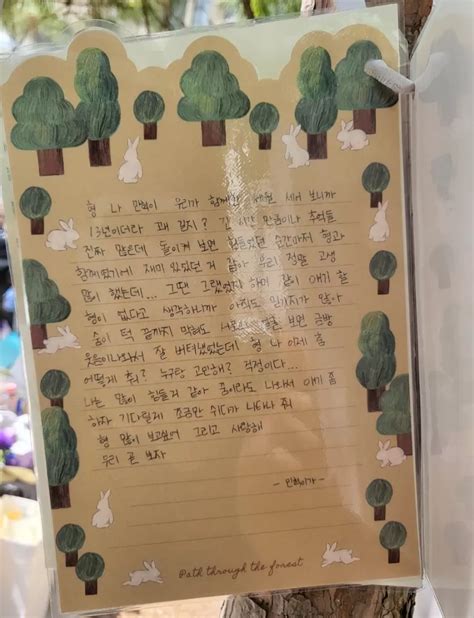 형 나 민혁이 우리가 함께한 세월 세어 보니까
13년이더라 꽤 길지? 긴 시간 만큼이나 추억들
진짜 많은데 돌이켜 보면 힘들었던 순간마저 형과
함께였기에 재미 있었던 거 같아 우리 정말 고생
많이 했는데... 그땐 그랬었지 하며 같이 얘기 할
형이 없다고 생각하니까 아직도 믿기지가 않아
숨이 턱 끝까지 막혀도 서로 얼굴 보면 금방
웃음이나와서 잘 버텨냈었는데 형 나 이제 춤
어떻게 춰? 누구랑 고민해? 걱정이다...
나는 많이 힘들거 같아 꿈이라도 나와서 얘기 좀
하자 기다릴게 조금만 쉬다가 나타나 줘
형 많이 보고싶어 그리고 사랑해
우리 곧 보자
- 민혁이가 -
Path through the forest